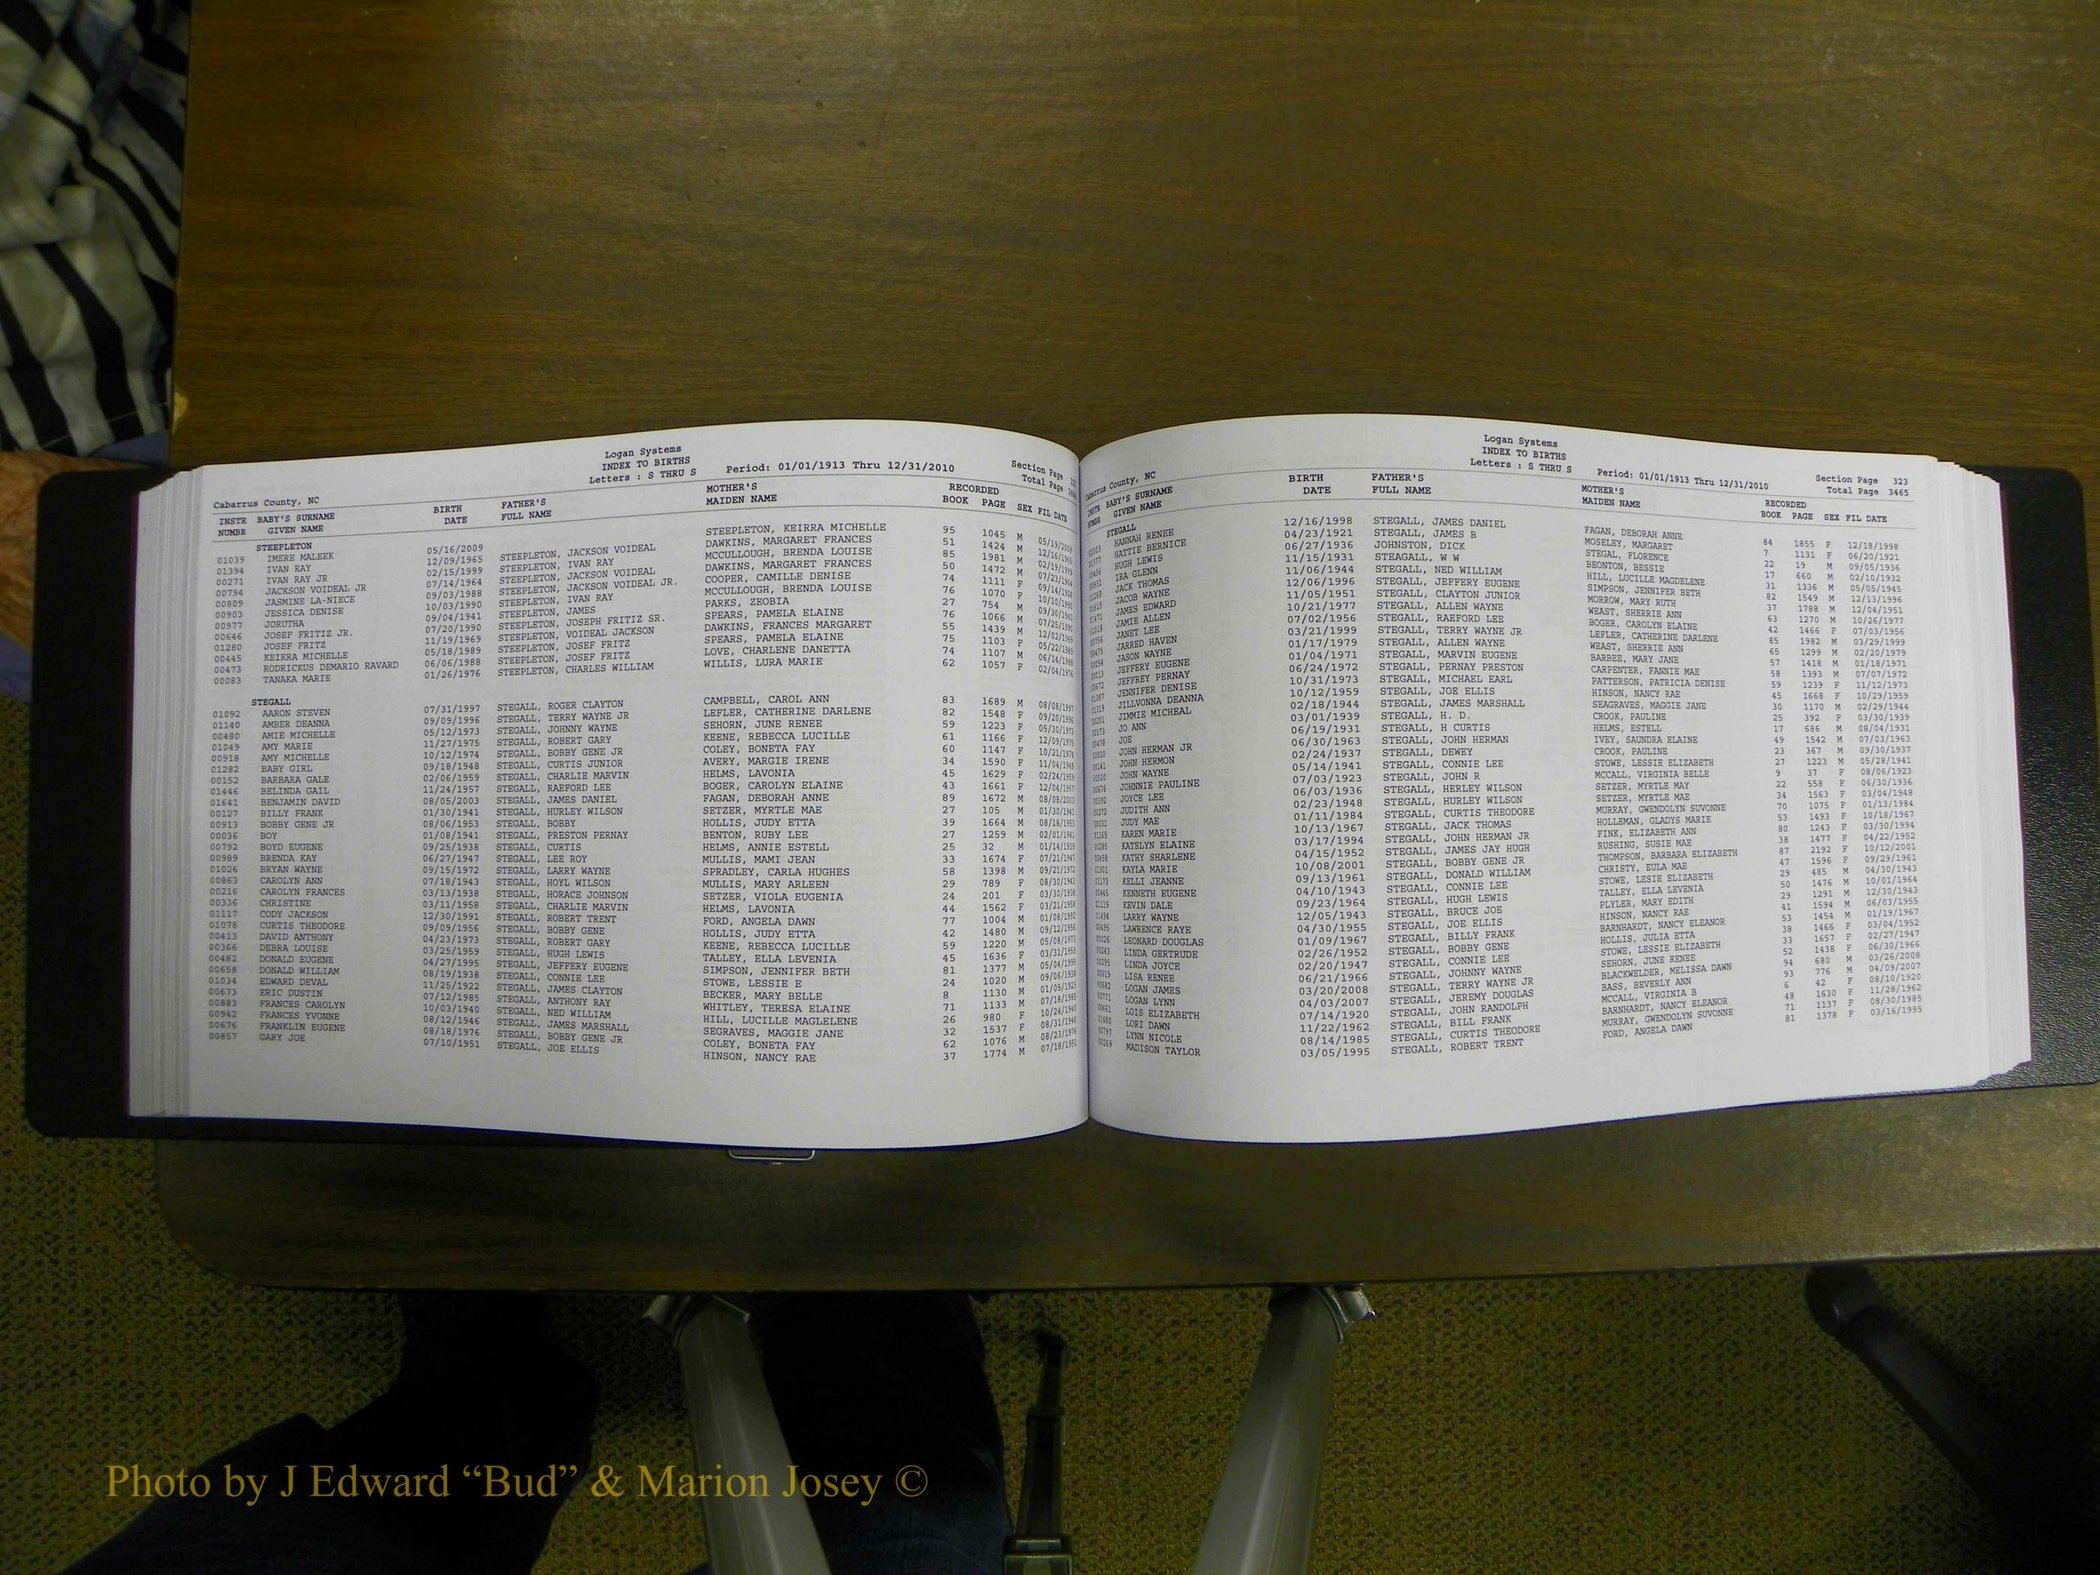 Logan Systems
INDEX TO BIRTHS
Letters : S THRU S
Period: 01/01/1913 Thru 12/31/2010
Section Page
Total Page
Cabarrus County, NC
INSTR BABY'S SURNAME BIRTH FATHER'S MOTHER'S RECORDED
NUMBR GIVEN NAME DATE FULL NAME MAIDEN NAME BOOK PAGE SEX FIL DATE
STEEPLETON
01039 IMERE MALEEK 05/16/2009 STEEPLETON, KEIRRA MICHELLE 95 1045 M 05/19/2009
01394 IVAN RAY 12/09/1965 STEEPLETON, JACKSON VOIDEAL DAWKINS, MARGARET FRANCES 51 1424 M 12/16/1965
00271 IVAN RAY JR 02/15/1999 STEEPLETON, IVAN RAY MCCULLOUGH, BRENDA LOUISE 85 1981 M 02/19/1999
00794 JACKSON VOIDEAL JR 07/14/1964 STEEPLETON, JACKSON VOIDEAL DAWKINS, MARGARET FRANCES 50 1472 M 07/23/1964
00809 JASMINE LA-NIECE 09/03/1988 STEEPLETON, JACKSON VOIDEAL JR. COOPER, CAMILLE DENISE 74 1111 F 09/14/1988
00903 JESSICA DENISE 10/03/1990 STEEPLETON, IVAN RAY MCCULLOUGH, BRENDA LOUISE 76 1070 F 10/10/1990
00977 JORUTHA 09/04/1941 STEEPLETON, JAMES PARKS, ZEOBIA 27 754 M 09/30/1941
00646 JOSEF FRITIZ JR. 07/20/1990 STEEPLETON, JOSEPH FRITIZ SR. SPEARS, PAMELA ELAINE 76 1066 M 07/25/1990
01280 JOSEF FRITZ 11/19/1969 STEEPLETON, VOIDEAL JACKSON DAWKINS, FRANCES MARGARET 55 1439 M 12/02/1969
00445 KEIRRA MICHELLE 05/18/1989 STEEPLETON, JOSEF FRITZ SPEARS, PAMELA ELAINE 75 1103 F 05/22/1989
00473 RODRICKUS DEMARIO RAVARD 06/06/1988 STEEPLETON, JOSEF FRITZ LOVE, CHARLENE DANETTA 74 1107 M 06/14/1988
00083 TANAKA MARIE 01/26/1976 STEEPLETON, CHARLES WILLIAM WILLIS, LURA MARIE 62 1057 F 02/04/1976
STEGALL
01092 AARON STEVEN 07/31/1997 STEGALL, ROGER CLAYTON CAMPBELL, CAROL ANN 83 1689 M 08/08/1997
01140 AMBER DEANNA 09/09/1996 STEGALL, TERRY WAYNE JR LEFLER, CATHERINE DARLENE 82 1548 F 09/20/1996
00480 AMIE MICHELLE 05/12/1973 STEGALL, JOHNNY WAYNE SEHORN, JUNE RENEE 59 1223 F 05/30/1973
01049 AMY MARIE 11/27/1975 STEGALL, ROBERT GARY KEENE, REBECCA LUCILLE 61 1166 F 12/09/1975
00918 AMY MICHELLE 10/12/1974 STEGALL, BOBBY GENE JR COLEY, BONETA FAY 60 1147 F 10/21/1974
01282 BABY GIRL 09/18/1948 STEGALL, CURTIS JUNIOR AVERY, MARGIE IRENE 34 1590 F 11/04/1948
00152 BARBARA GALE 02/06/1959 STEGALL, CHARLIE MARVIN HELMS, LAVONIA 45 1629 F 02/24/1959
01446 BELINDA GAIL 11/24/1957 STEGALL, RAEFORD LEE BOGER, CAROLYN ELAINE 43 1661 F 12/04/1957
01641 BENJAMIN DAVID 08/05/2003 STEGALL, JAMES DANIEL FAGAN, DEBORAH ANNE 89 1672 M 08/08/2003
00127 BILLY FRANK 01/30/1941 STEGALL, HURLEY WILSON SETZER, MYRTLE MAE 27 105 M 01/30/1941
00913 BOBBY GENE JR 08/06/1953 STEGALL, BOBBY HOLLIS, JUDY ETTA 39 1664 M 08/18/1953
00036 BOY 01/08/1941 STEGALL, PRESTON PERNAY BENTON, RUBY LEE 27 1259 M 02/01/1941
00792 BOYD EUGENE 09/25/1938 STEGALL, CURTIS HELMS, ANNIE ESTELL 25 32 M 01/14/1939
00989 BRENDA KAY 06/27/1947 STEGALL, LEE ROY MULLIS, MAMI JEAN 33 1674 F 07/21/1947
01026 BRYAN WAYNE 09/15/1972 STEGALL, LARRY WAYNE SPRADLEY, CARLA HUGHES 58 1398 M 09/21/1972
00863 CAROLYN ANN 07/18/1943 STEGALL, HOYL WILSON MULLIS, MARY ARLEEN 29 789 F 08/30/1943
00216 CAROLYN FRANCES 03/13/1938 STEGALL, HORACE JOHNSON SETZER, VIOLA EUGENIA 24 201 F 03/30/1938
00336 CHRISTINE 03/11/1958 STEGALL, CHARLIE MARVIN HELMS, LAVONIA 44 1562 F 03/21/1958
01117 CODY JACKSON 12/30/1991 STEGALL, ROBERT TRENT FORD, ANGELA DAWN 77 1004 M 01/08/1992
01078 CURTIS THEODORE 09/09/1956 STEGALL, BOBBY GENE HOLLIS, JUDY ETTA 42 1480 M 09/12/1956
00413 DAVID ANTHONY 04/23/1973 STEGALL, ROBERT GARY KEENE, REBECCA LUCILLE 59 1220 M 05/08/1973
00366 DEBRA LOUISE 03/25/1959 STEGALL, HUGH LEWIS TALLEY, ELLA LEVENIA 45 1636 F 03/31/1959
00482 DONALD EUGENE 04/27/1995 STEGALL, JEFFERY EUGENE SIMPSON, JENNIFER BETH 81 1377 M 05/04/1995
00658 DONALD WILLIAM 08/19/1938 STEGALL, CONNIE LEE STOWE, LESSIE E 24 1020 M 09/06/1938
01034 EDWARD DEVAL 11/25/1922 STEGALL, JAMES CLAYTON BECKER, MARY BELLE 8 1130 M 01/05/1923
00673 ERIC DUSTIN 07/12/1985 STEGALL, ANTHONY RAY WHITLEY, TERESA ELAINE 71 1133 M 07/18/1985
00883 FRANCES CAROLYN 10/03/1940 STEGALL, NED WILLIAM HILL, LUCILLE MAGLELENE 26 980 F 10/24/1940
00942 FRANCES YVONNE 08/12/1946 STEGALL, JAMES MARSHALL SEGRAVES, MAGGIE JANE 32 1537 F 08/31/1946
00676 FRANKLIN EUGENE 08/18/1976 STEGALL, BOBBY GENE JR COLEY, BONETA FAY 62 1076 M 08/23/1976
00857 GARY JOE 07/10/1951 STEGALL, JOE ELLIS HINSON, NANCY RAE 37 1774 M 07/18/1951
Logan Systems
INDEX TO BIRTHS
Letters : S THRU S
Period: 01/01/1913 Thru 12/31/2010
Section Page 323
Total Page 3465
Cabarrus County, NC
INSTR BABY'S SURNAME BIRTH FATHER'S MOTHER'S RECORDED
NUMBR GIVEN NAME DATE FULL NAME MAIDEN NAME BOOK PAGE SEX FIL DATE
STEGALL
HANNAH RENEE 12/16/1998 STEGALL, JAMES DANIEL FAGAN, DEBORAH ANNE 84 1855 F 12/18/1998
HATTIE BERNICE 04/23/1921 STEGALL, JAMES B MOSELEY, MARGARET 7 1131 F 06/20/1921
HUGH LEWIS 06/27/1936 JOHNSTON, DICK STEGAL, FLORENCE 22 19 M 09/05/1936
IRA GLENN 11/15/1931 STEAGALL, W W BEONTON, BESSIE 17 660 M 02/10/1932
JACK THOMAS 11/06/1944 STEGALL, NED WILLIAM HILL, LUCILLE MAGDELENE 31 1336 M 05/05/1945
JACOB WAYNE 12/06/1996 STEGALL, JEFFERY EUGENE SIMPSON, JENNIFER BETH 82 1549 M 12/13/1996
JAMES EDWARD 11/05/1951 STEGALL, CLAYTON JUNIOR MORROW, MARY RUTH 37 1788 M 12/04/1951
JAMIE ALLEN 10/21/1977 STEGALL, ALLEN WAYNE WEAST, SHERRIE ANN 63 1270 M 10/26/1977
JANET LEE 07/02/1956 STEGALL, RAEFORD LEE BOGER, CAROLYN ELAINE 42 1466 F 07/03/1956
JARRED HAVEN 03/21/1999 STEGALL, TERRY WAYNE JR LEFLER, CATHERINE DARLENE 85 1982 M 03/29/1999
JASON WAYNE 01/17/1979 STEGALL, ALLEN WAYNE WEAST, SHERRIE ANN 65 1299 M 02/20/1979
JEFFERY EUGENE 01/04/1971 STEGALL, MARVIN EUGENE BARBEE, MARY JANE 57 1418 M 01/18/1971
JEFFREY PERNAY 06/24/1972 STEGALL, PERNAY PRESTON CARPENTER, FANNIE MAE 58 1393 M 07/07/1972
JENNIFER DENISE 10/31/1973 STEGALL, MICHAEL EARL PATTERSON, PATRICIA DENISE 59 1239 F 11/12/1973
JILLVONNA DEANNA 10/12/1959 STEGALL, JOE ELLIS HINSON, NANCY RAE 45 1668 F 10/29/1959
JIMMIE MICHEAL 02/18/1944 STEGALL, JAMES MARSHALL SEAGRAVES, MAGGIE JANE 30 1170 M 02/29/1944
JO ANN 03/01/1939 STEGALL, H. D. CROOK, PAULINE 25 392 F 03/30/1939
JOE 06/19/1931 STEGALL, H CURTIS HELMS, ESTELL 17 686 M 08/04/1931
JOHN HERMAN JR 06/30/1963 STEGALL, JOHN HERMAN IVEY, SAUNDRA ELAINE 49 1542 M 07/03/1963
JOHN HERMON 02/24/1937 STEGALL, DEWEY CROOK, PAULINE 23 367 M 09/30/1937
JOHN WAYNE 05/14/1941 STEGALL, CONNIE LEE STOWE, LESSIE ELIZABETH 27 1223 M 05/28/1941
JOHNNIE PAULINE 07/03/1923 STEGALL, JOHN R MCCALL, VIRGINIA BELLE 9 37 F 08/06/1923
JOYCE LEE 06/03/1936 STEGALL, HERLEY WILSON SETZER, MYRTLE MAY 22 558 F 06/30/1936
JUDITH ANN 02/23/1948 STEGALL, HURLEY WILSON SETZER, MYRTLE MAE 34 1563 F 03/04/1948
JUDY MAE 01/11/1984 STEGALL, CURTIS THEODORE MURRAY, GWENDOLYN SUVONNE 70 1075 F 01/13/1984
KAREN MARIE 10/13/1967 STEGALL, JACK THOMAS HOLLEMAN, GLADYS MARIE 53 1493 F 10/18/1967
KATELYN ELAINE 03/17/1994 STEGALL, JOHN HERMAN JR FINK, ELIZABETH ANN 80 1243 F 03/30/1994
KATHY SHARLENE 04/15/1952 STEGALL, JAMES JAY HUGH RUSHING, SUSIE MAE 38 1477 F 04/22/1952
KAYLA MARIE 10/08/2001 STEGALL, BOBBY GENE JR THOMPSON, BARBARA ELIZABETH 87 2192 F 10/12/2001
KELLI JEANNE 09/13/1961 STEGALL, DONALD WILLIAM CHRISTY, EULA MAE 47 1596 F 09/29/1961
KENNETH EUGENE 04/10/1943 STEGALL, CONNIE LEE STOWE, LESIE ELIZABETH 29 485 M 04/30/1943
KEVIN DALE 09/23/1964 STEGALL, HUGH LEWIS TALLEY, ELLA LEVENIA 50 1476 M 10/01/1964
LARRY WAYNE 12/05/1943 STEGALL, BRUCE JOE PLYLER, MARY EDITH 29 1291 M 12/30/1943
LAWRENCE RAYE 04/30/1955 STEGALL, JOE ELLIS HINSON, NANCY RAE 41 1594 M 06/03/1955
LEONARD DOUGLAS 01/09/1967 STEGALL, BILLY FRANK BARNHARDT, NANCY ELEANOR 53 1454 M 01/19/1967
LINDA GERTRUDE 02/26/1952 STEGALL, BOBBY GENE HOLLIS, JULIA ETTA 38 1466 F 03/04/1952
LINDA JOYCE 02/20/1947 STEGALL, CONNIE LEE STOWE, LESSIE ELIZABETH 33 1657 F 02/27/1947
LISA RENEE 06/21/1966 STEGALL, JOHNNY WAYNE SEHORN, JUNE RENEE 52 1438 F 06/30/1966
LOGAN JAMES 03/20/2008 STEGALL, TERRY WAYNE JR BLACKWELDER, MELISSA DAWN 94 680 M 03/26/2008
LOGAN LYNN 04/03/2007 STEGALL, JEREMY DOUGLAS BASS, BEVERLY ANN 93 776 M 04/09/2007
LOIS ELIZABETH 07/14/1920 STEGALL, JOHN RANDOLPH MCCALL, VIRGINIA B 6 42 F 08/10/1920
LORI DAWN 11/22/1962 STEGALL, BILL FRANK BARNHARDT, NANCY ELEANOR 48 1630 F 11/28/1962
LYNN NICOLE 08/14/1985 STEGALL, CURTIS THEODORE MURRAY, GWENDOLYN SUVONNE 71 1137 F 08/30/1985
MADISON TAYLOR 03/05/1995 STEGALL, ROBERT TRENT FORD, ANGELA DAWN 81 1378 F 03/16/1995
Photo by J Edward “Bud” & Marion Josey ©